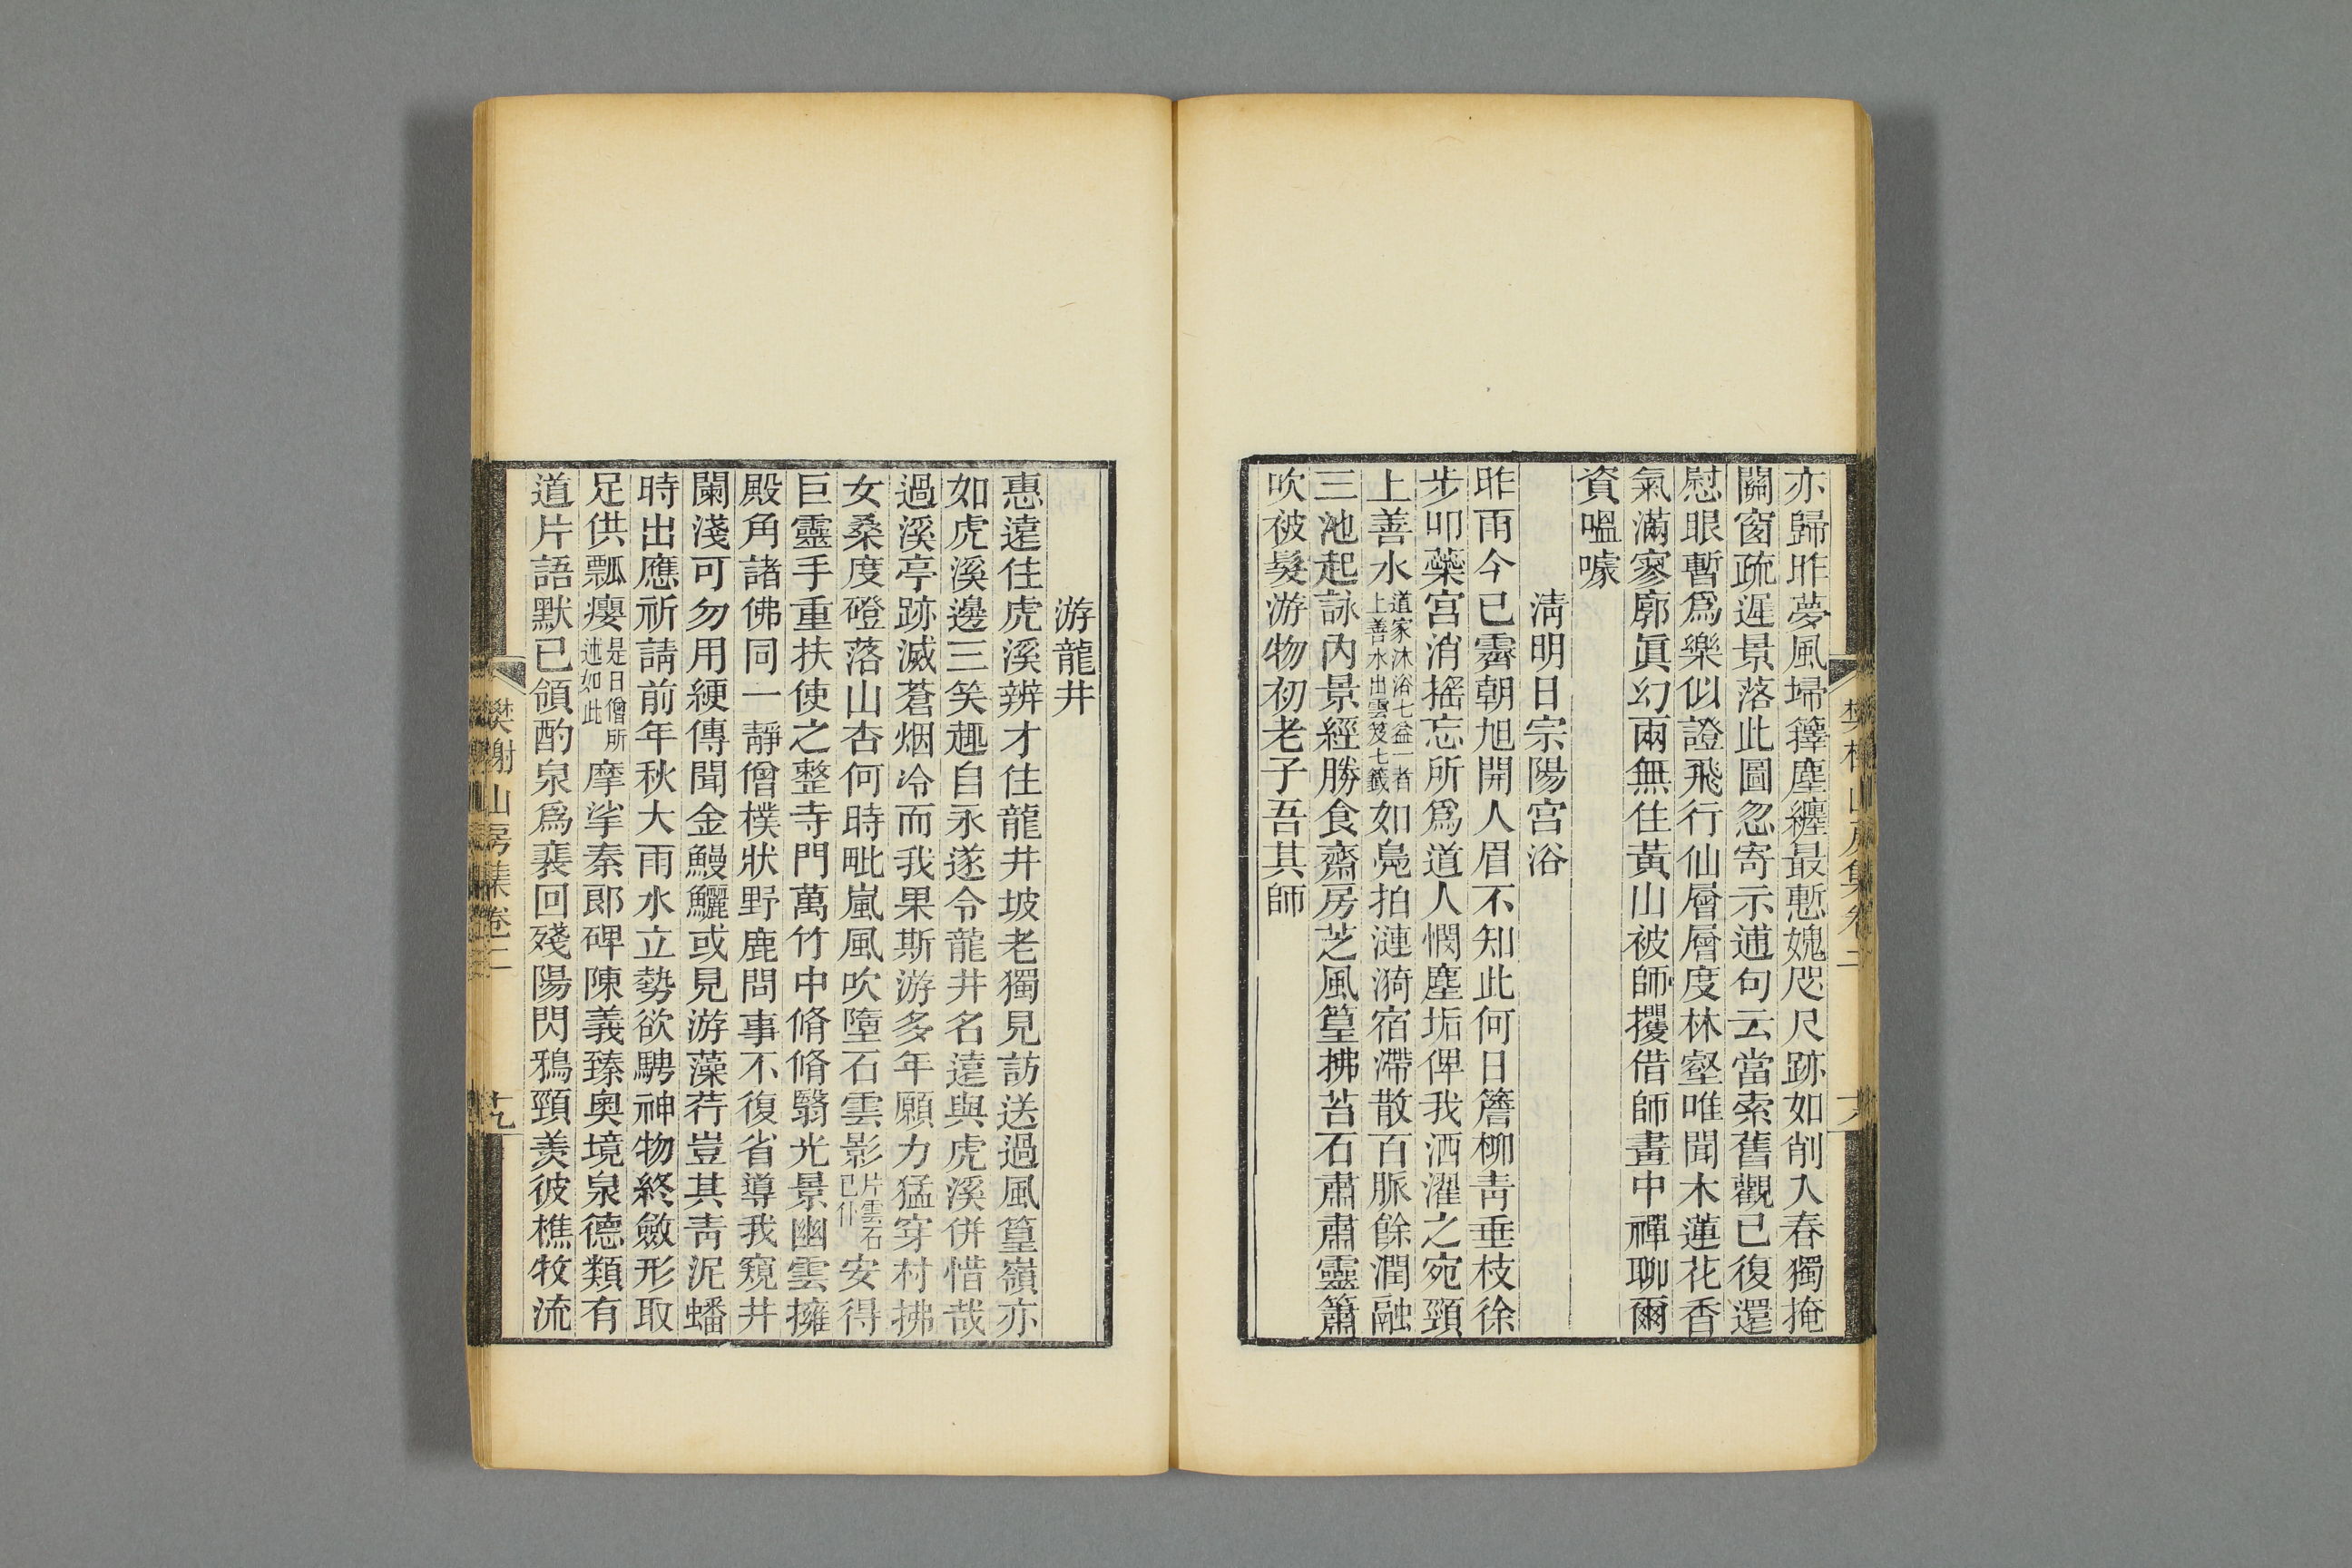 亦歸昨夢風埽籜塵纏最慙媿咫尺跡如削入春獨掩
關窗疏遲景落此圖忽寄示逋句云當索舊觀已復還
慰眼暫爲樂似證飛行仙層層度林壑唯聞木蓮花香
氣滿寥廓眞幻兩無住黃山被師攫借師畫中禪聊爾
資嗢噱
淸明日宗陽宮浴
昨雨今已霽朝旭開人眉不知此何日簷柳靑垂枝徐
步叩蘂宮消搖忘所爲道人憫塵垢俾我洒濯之宛頸
上善水道家沐浴七益一者上善水出雲笈七籤如鳧拍漣漪宿滯散百脈餘潤融
三池起詠內景經勝食齋房芝風篁拂苔石肅肅靈簫
吹被髮游物初老子吾其師
游龍井
惠遠住虎溪辨才住龍井坡老獨見訪送過風篁嶺亦
如虎溪邊三笑趣自永遂令龍井名遠與虎溪併惜哉
過溪亭跡滅蒼烟冷而我果斯游多年願力猛穿村拂
女桑度磴落山杏何時毗嵐風吹墮石雲影片雲石已仆安得
巨靈手重扶使之整寺門萬竹中脩脩翳光景幽雲擁
殿角諸佛同一靜僧樸狀野鹿問事不復省導我窺井
闌淺可勿用綆傳聞金鰻鱺或見游藻荇豈其靑泥蟠
時出應祈請前年秋大雨水立勢欲騁神物終斂形取
足供瓢癭是日僧所述如此摩挲秦郎碑陳義臻奧境泉德類有
道片語默已領酌泉爲裵回殘陽閃鴉頸羨彼樵牧流
樊謝山房集卷二
十九